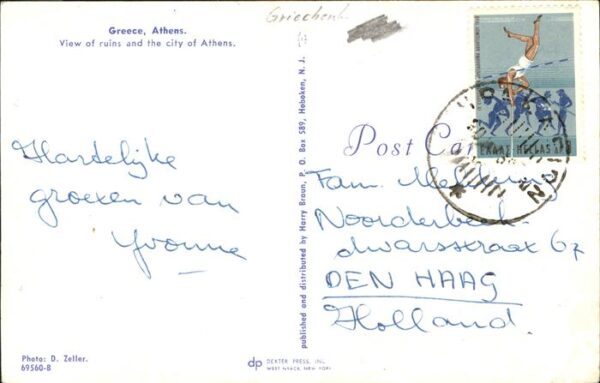 Greece, Athens.
View of ruins and the city of Athens.
Griechenl.
Hartelijke
groeten van
Yvonne
Photo: D. Zeller.
69560-B
published and distributed by Harry Braun, P. O. Box 589, Hoboken, N. J.
dp DEXTER PRESS, INC.
WEST NYACK, NEW YORK
Post Car
ΕΛΛΑΣ HELLAS
Fam.
Noorderbeek-
dwarsstraat 67
DEN HAAG
Holland.